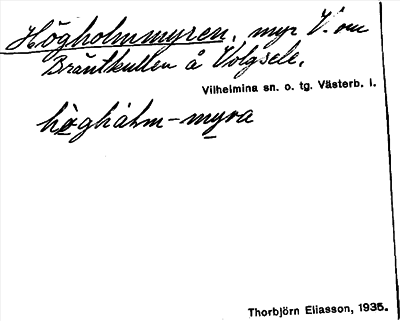 Högholmmyren, myr V. om
Bräntkullen å Volgsele.
Vilhelmina sn. o. tg. Västerb. l.
hògháƚm-myra
Thorbjörn Eliasson, 1935.